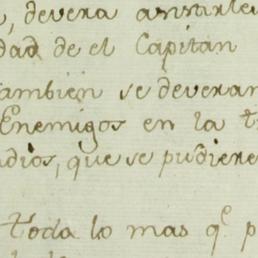 , devera
dad de el Capitan
tambien se deveran
Enemigos en la
que se pudiere
toda lo mas q.e p